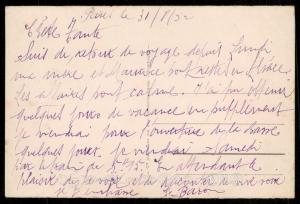 Paris le 31/8/32
Chère Tante
Suis de retour de voyage depuis Lundi
ma mère et Maurice sont restés en
Les affaires sont calmes.
quelques jours de vacance en supplément
je viendrai pour l'ouverture de la chasse
quelques jours. Je viendrai Samedi
par le train de En attendant le
plaisir de te voir et de vive voix
je t'embrasse